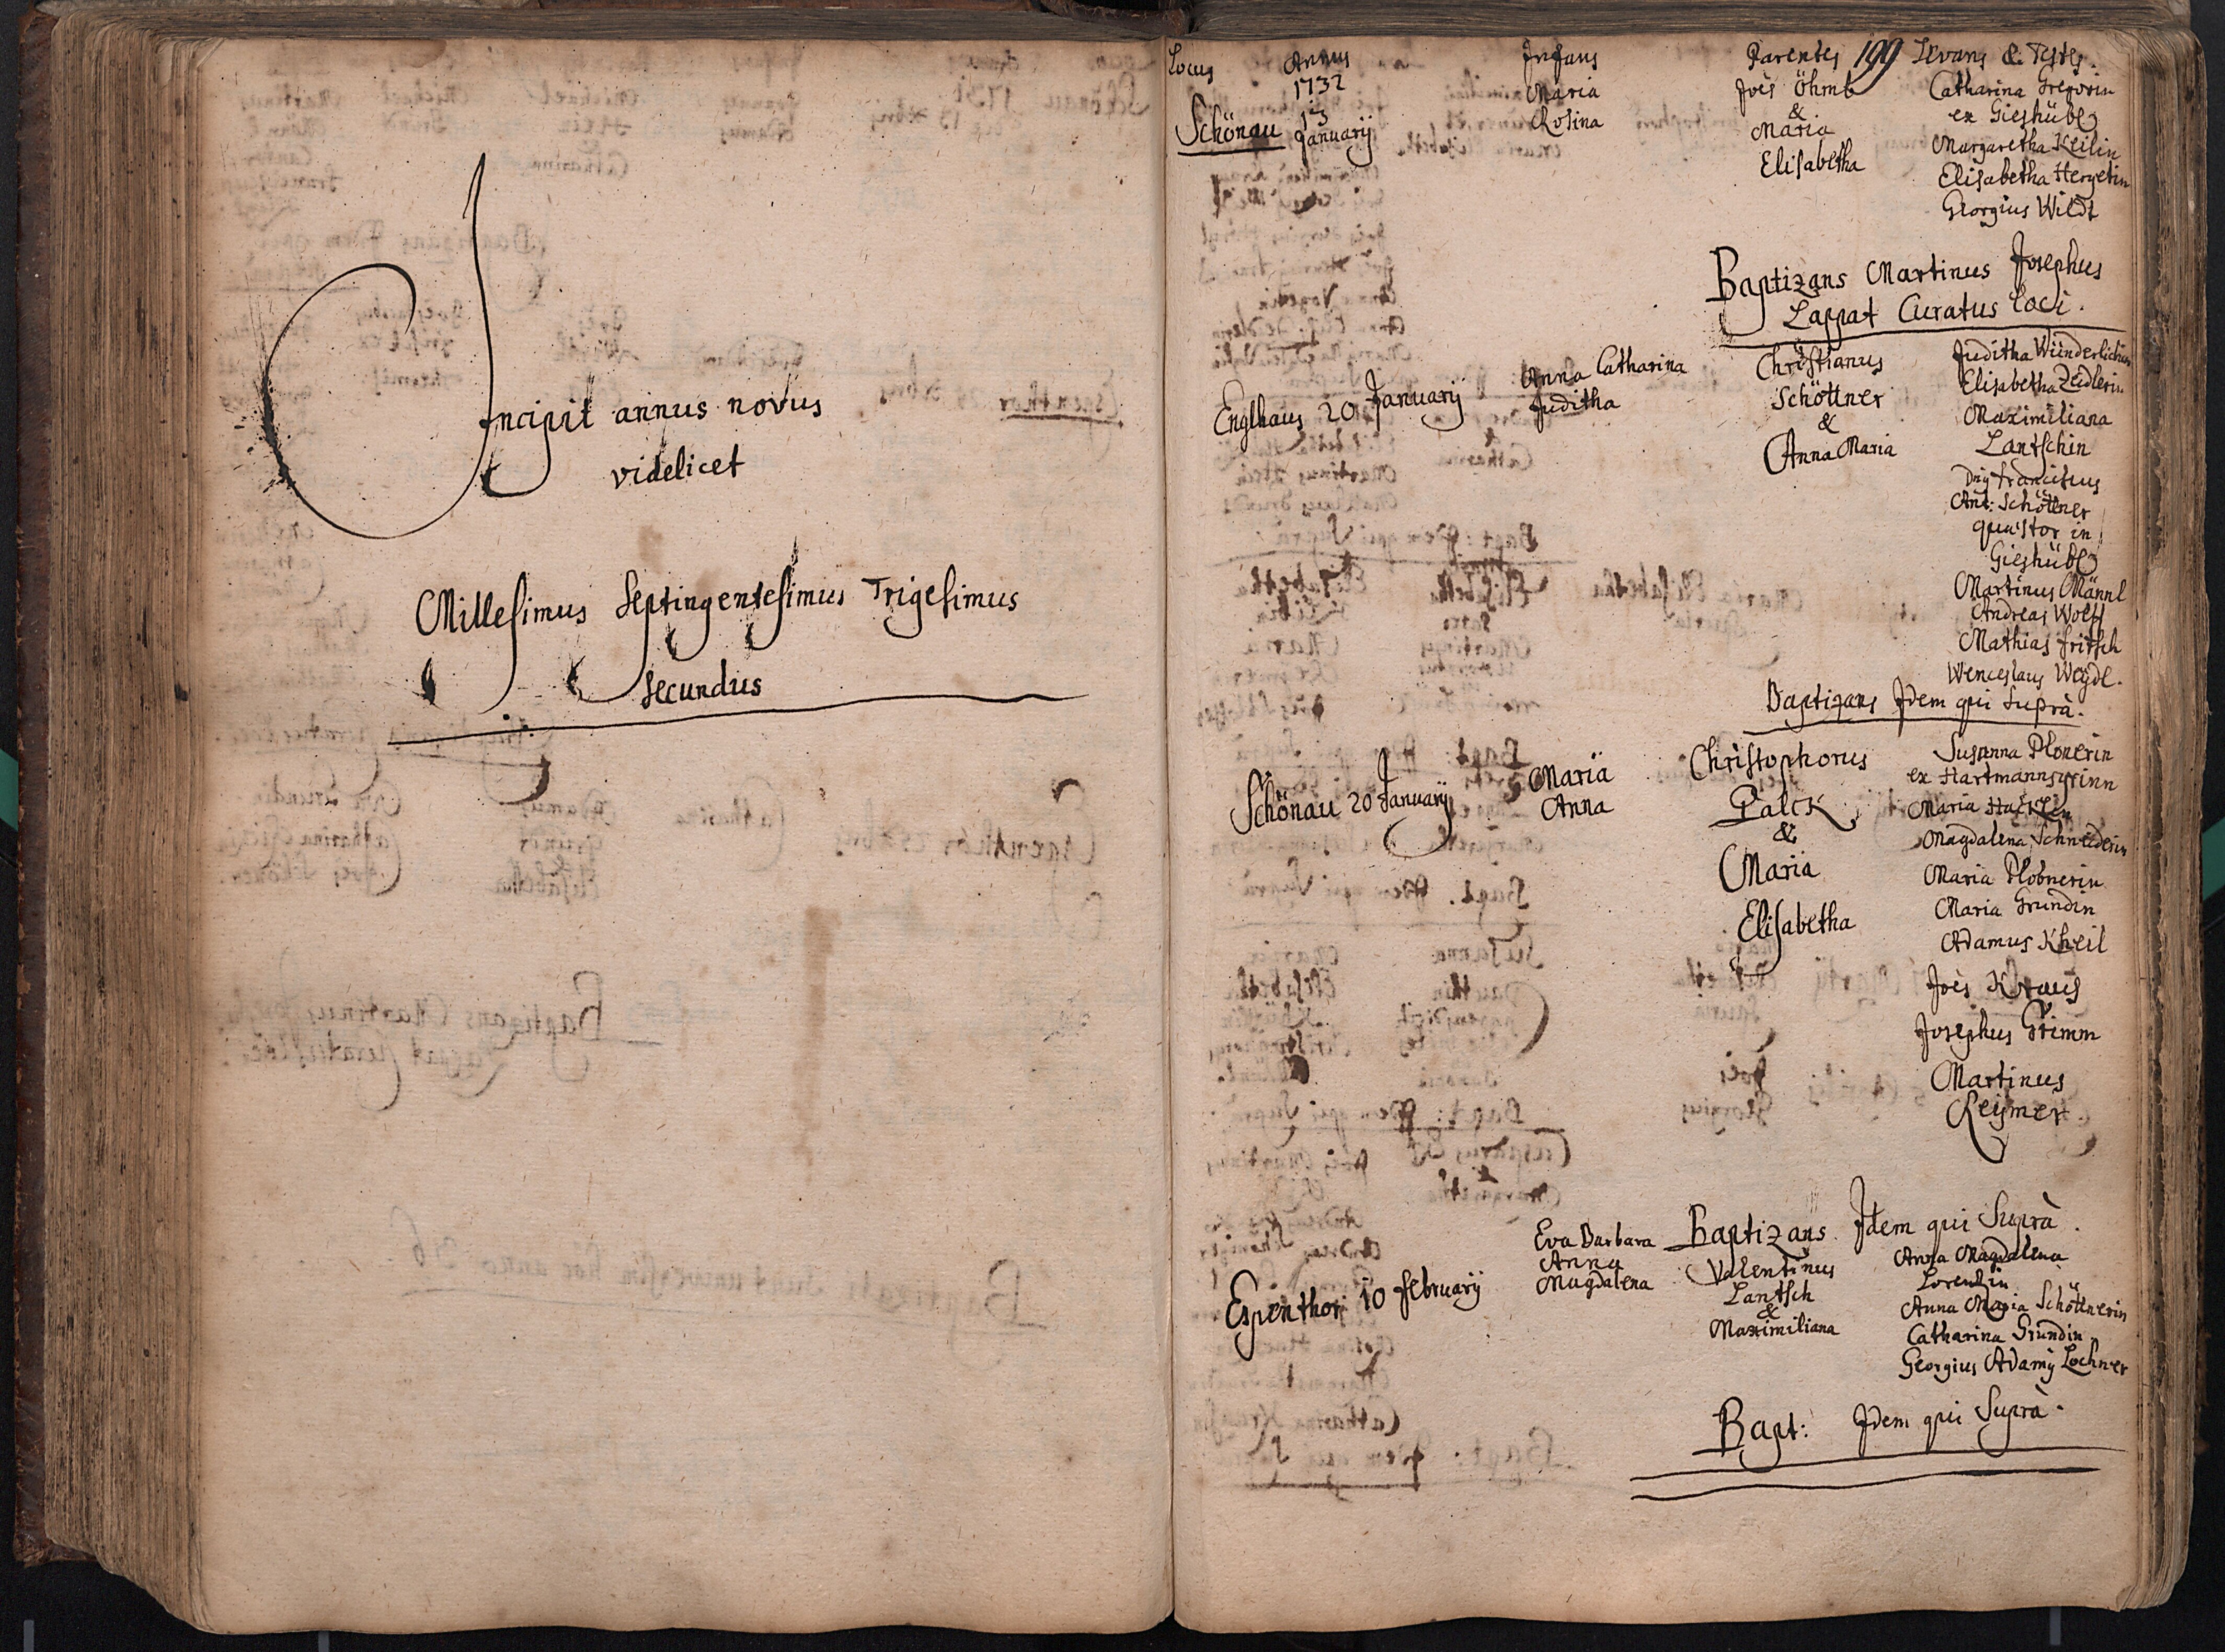 Incipit annus novus
videlicet
Millesimus Septingentesimus Trigesimus
Secundus
Locus Annus Infans Parentes 199 Levans & Testes.
1732
Schönau 13 Januarij
Maria
Rosina
Joes Öhmb
&
Maria
Elisabetha
Catharina Gregorin
ex Gieshübl
Margaretha Keilin
Elisabetha Hergetin
Georgius Wildt
Baptizans Martinus Josephus
Lappat Curatus loci.
Englhaus 20 Januarij
Anna Catharina
Juditha
Christianus
Schöttner
&
Anna Maria
Juditha Wunderlichin
Elisabetha Zeidlerin
Maximiliana
Lantschin
Dnus Franciscus
Ant: Schöttner
quaestor in
Gieshübl
Martinus Männl
Andreas Wolff
Mathias Fritsch
Wenceslaus Weydl.
Baptizans Idem qui Suprà.
Schönau 20 Januarij
Maria
Anna
Christophorus
Palck
&
Maria
Elisabetha
Susanna Plonerin
ex Hartmannsgrinn
Maria
Magdalena Schneiderin
Maria Plobnerin
Maria Grundin
Adamus Kheil
Joes Kraus
Josephus Grimm
Martinus
Reismer.
Baptizans Idem qui Suprà.
Espenthor 10 February
Eva Barbara
Anna
Magdalena
Valentinus
Lantsch
&
Maximiliana
Anna Magdalena
Lorentzin
Anna Maria Schöttnerin
Catharina Grundin
Georgius Adamus Lochner
Bapt: Idem qui Suprà.